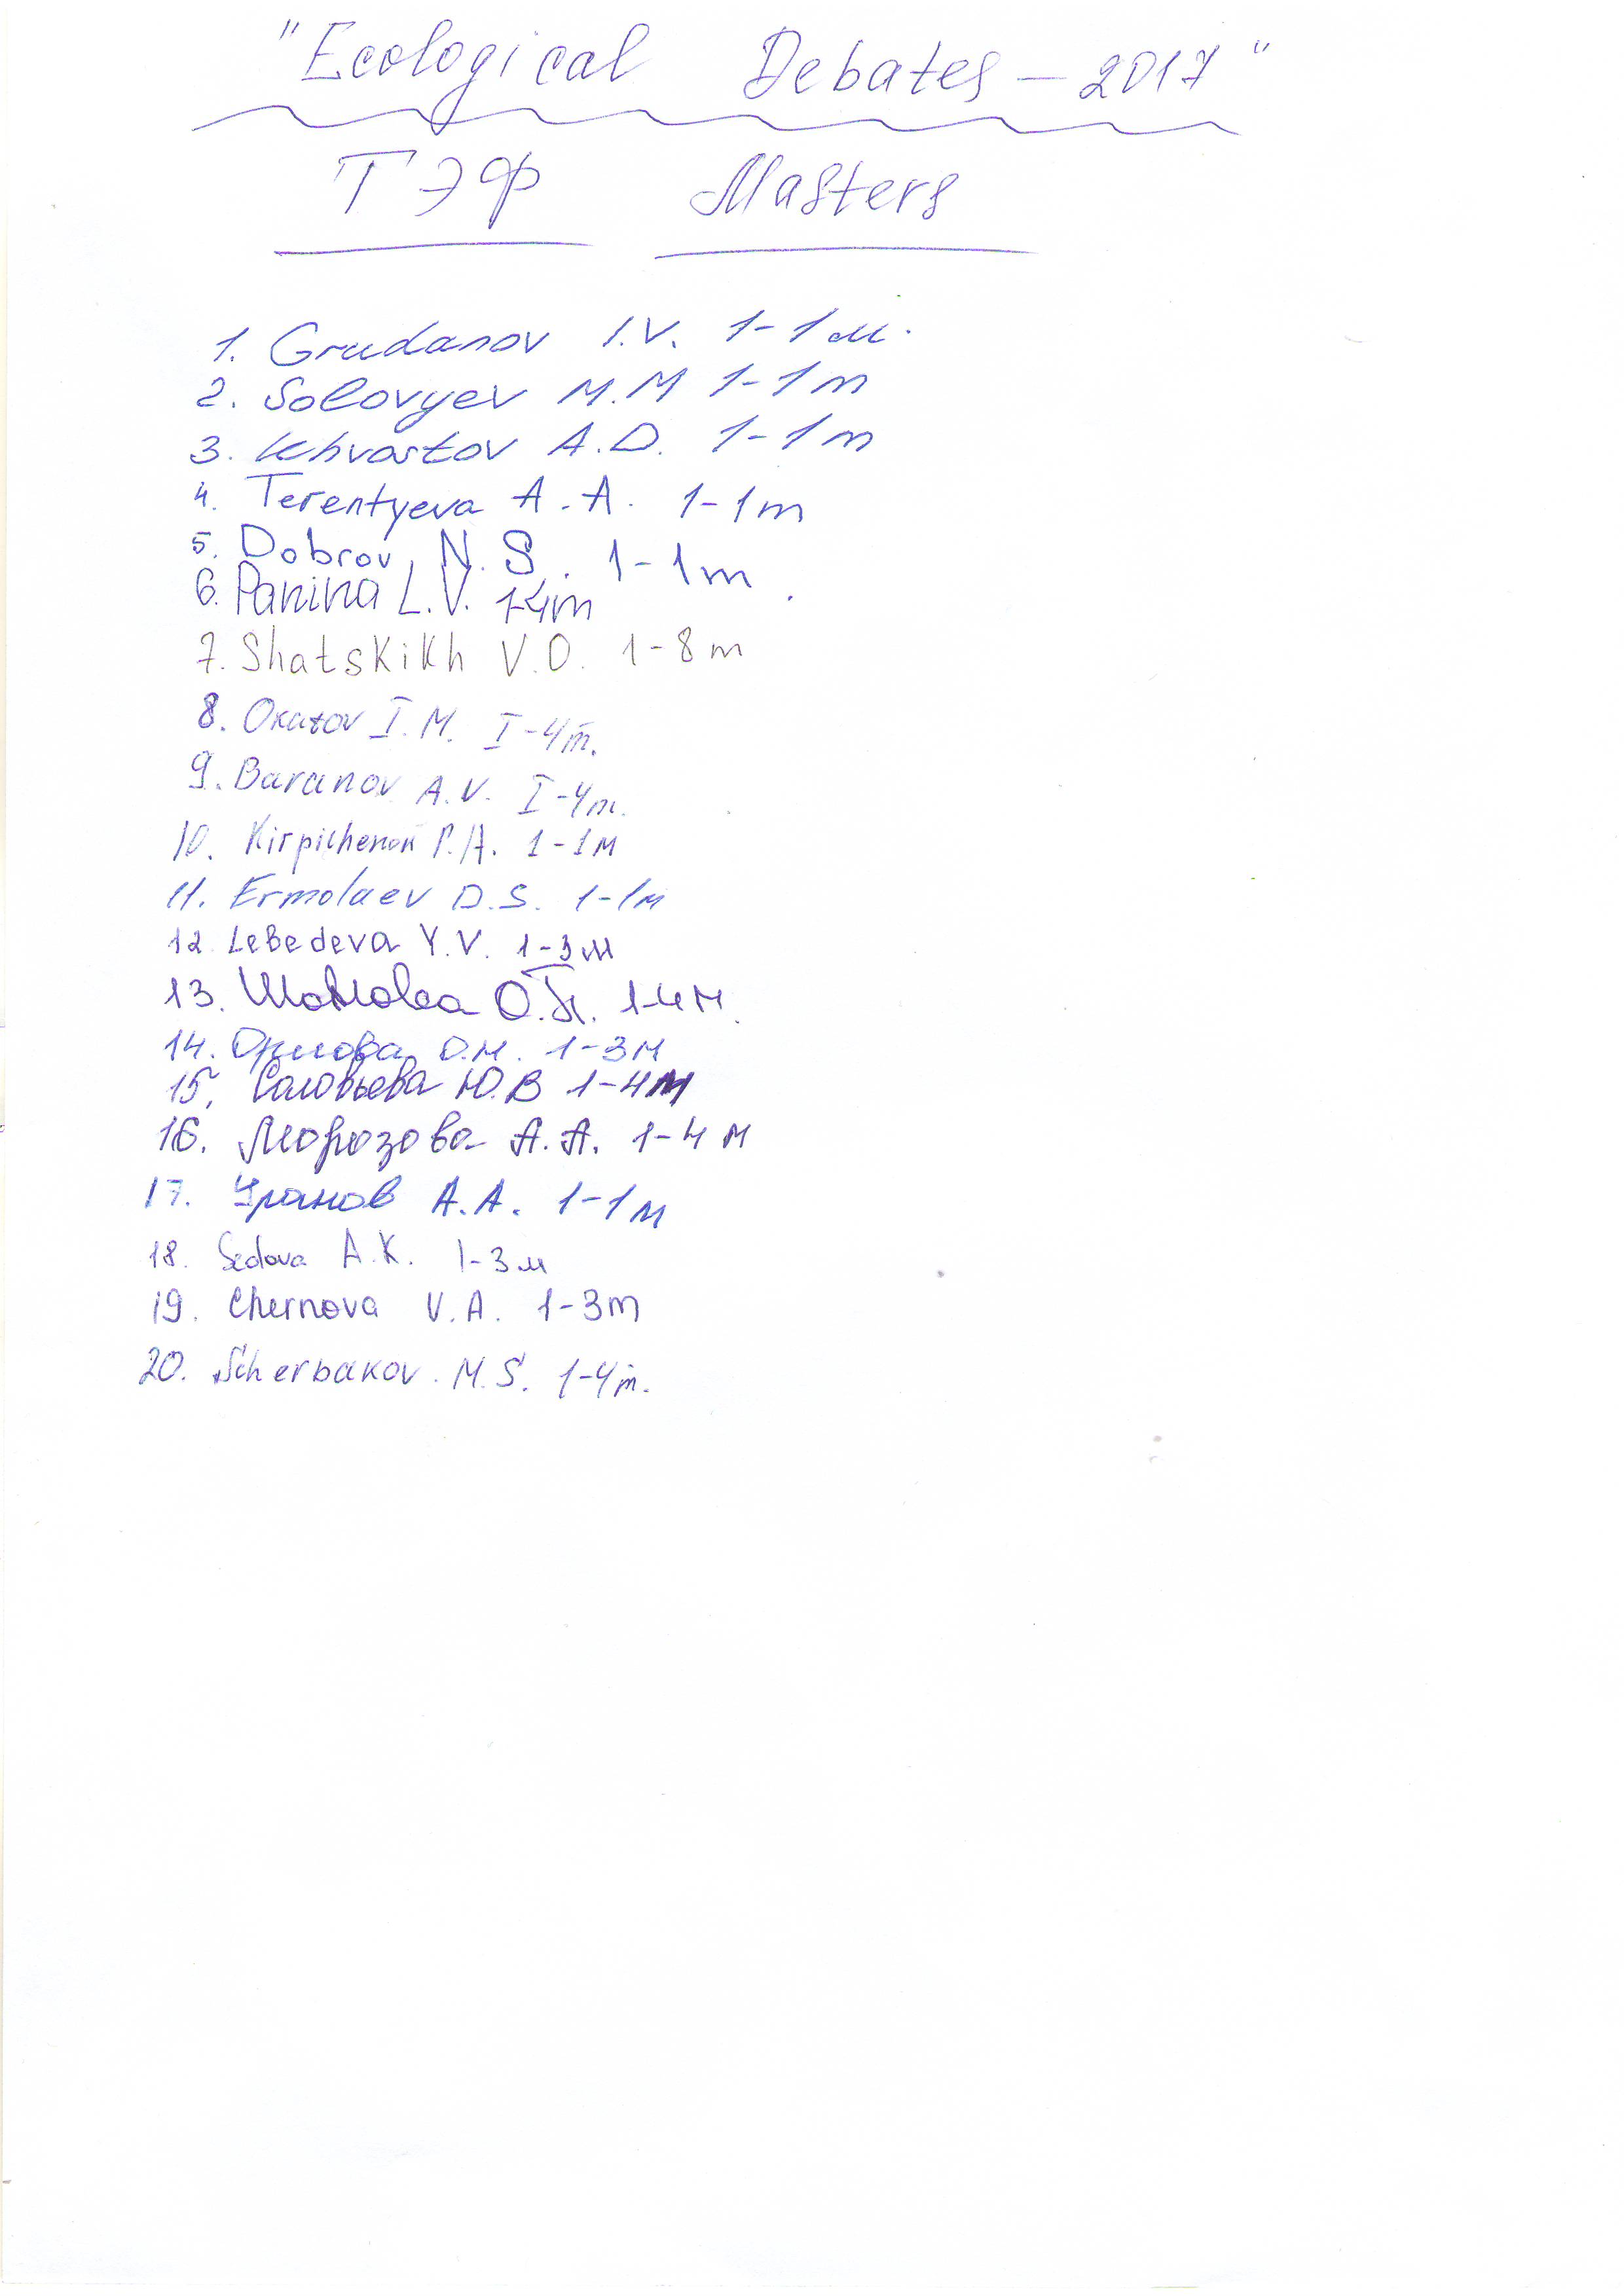 "Ecological Debates – 2017"
ТЭФ Masters
1. Grudanov I.V. 1-1м.
2. Solovyev M.M 1-1m
3. Khvostov A.D. 1-1m
4. Terentyeva A.A. 1-1m
5. Dobrov N.S. 1-1m
6. Panina L.V. 1-4m
7. Shatskikh V.O. 1-8m
8. Okatov I.M. I-4m.
9. Baranov A.V. I-4m.
10. Kirpichenok P.A. 1-1м
11. Ermolaev D.S. 1-1м
12. Lebedeva Y.V. 1-3м
13. О.П. 1-4м.
14. Орлова О.М. 1-3м
15. Соловьева Ю.В 1-4м
16. Морозова А.А. 1-4м
17. Уранов А.А. 1-1м
18. Sedova A.K. 1-3м
19. Chernova V.A. 1-3m
20. Scherbakov. M.S. 1-4m.